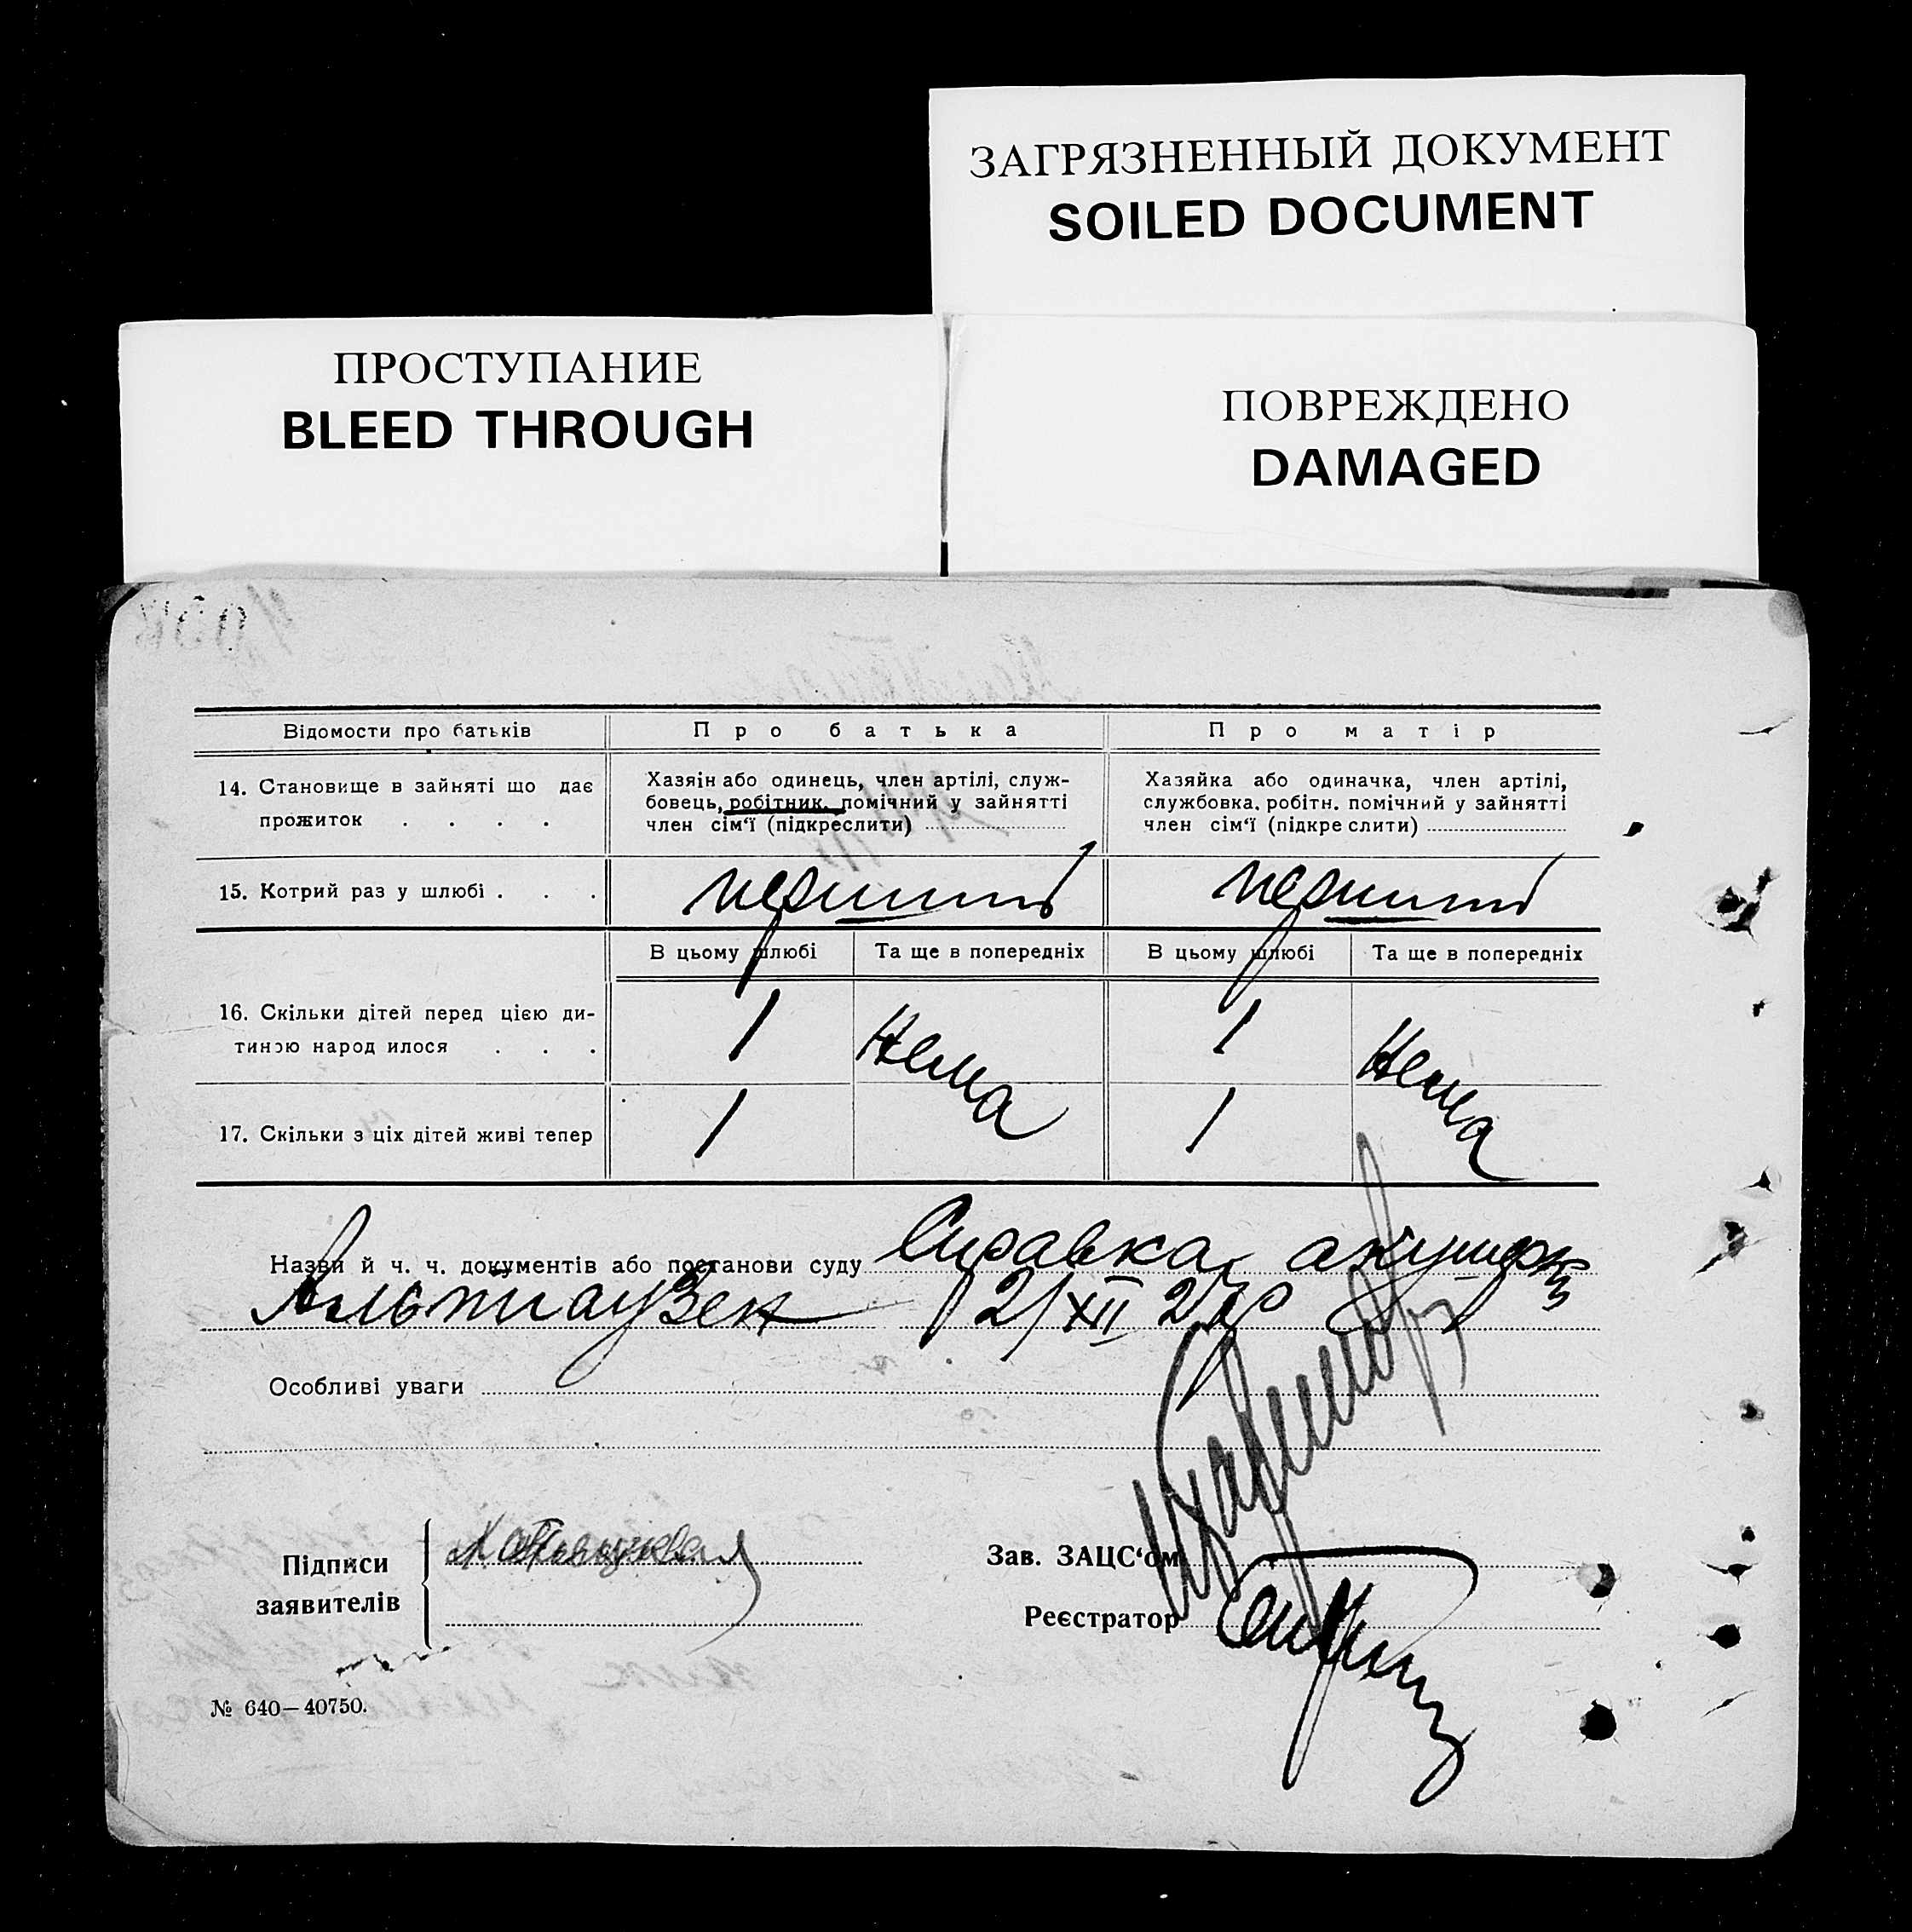 ЗАГРЯЗНЕННЫЙ ДОКУМЕНТ
SOILED DOCUMENT
ПРОСТУПАНИЕ
BLEED THROUGH
ПОВРЕЖДЕНО
DAMAGED
Відомости про батьків Про батька Про матір
14. Становище в зайняті що дає
прожиток . . . .
Хазяін або одинець, член артілі, служ-
бовець, робітник. помічний у зайнятті
член сім'ї (підкреслити)
Хазяйка або одиначка, член артілі,
службовка. робітн. помічний у зайнятті
член сім'ї (підкреслити)
15. Котрий раз у шлюбі . . . перший перший
В цьому шлюбі Та ще в попередніх В цьому шлюбі Та ще в попередніх
16. Скільки дітей перед цією ди-
тиною народилося . . . 1 Нема 1 Нема
17. Скільки з ціх дітей живі тепер 1 1
Назви й ч. ч. документів або постанови суду Справка акушерки
Альтгаузен
Особливі уваги
Підписи
заявителів
Зав. ЗАЦС'ом
Реєстратор
№ 640—40750.